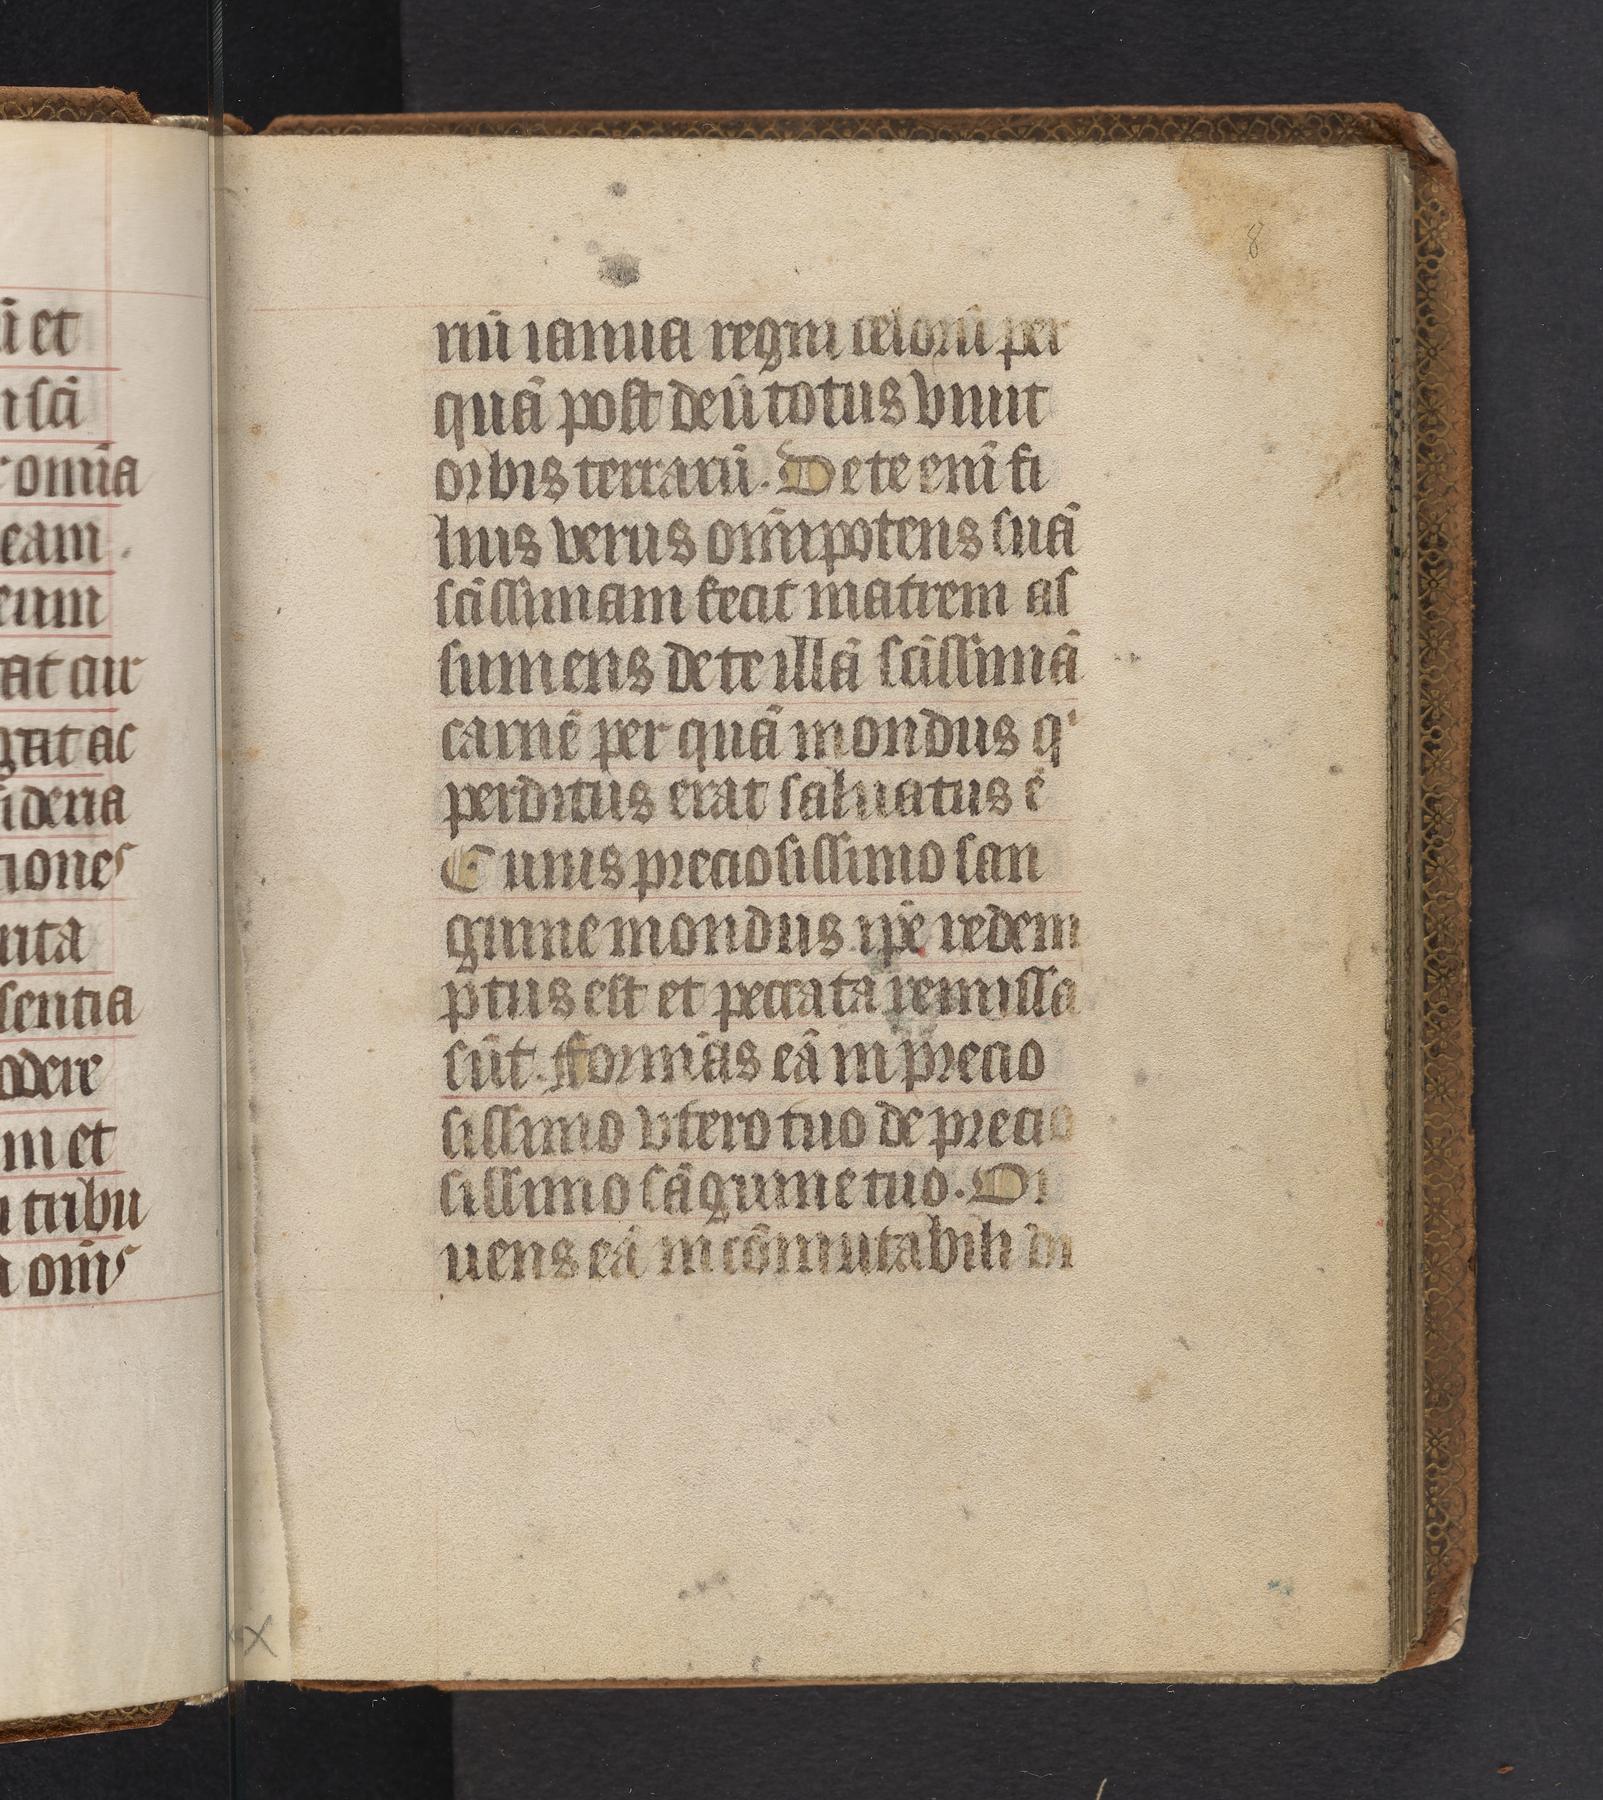 ū et
n scā
omīa
eam .
eum
tat cir
gat ac
sideria
tiones
uita
sentia
odere
m et
tribu
om̄s
8
niū ianua regni celorū per
quā post deū totus viuit
orbis terrarū. De te enī fi
lius verus om̄ipotens suā
scissimam fecit matrem as
sumens de te illā scissimā
carnē per quā mondus qi
perditus erat saluatus ē
Cuius preciosissimo san
guine mondus ip̄e redem
ptus est et peccata remissa
sūt. fformās eā in precio
sissimo vtero tuo de precio
sissimo sāguine tuo. Di
uens eā incōmutabili di
X